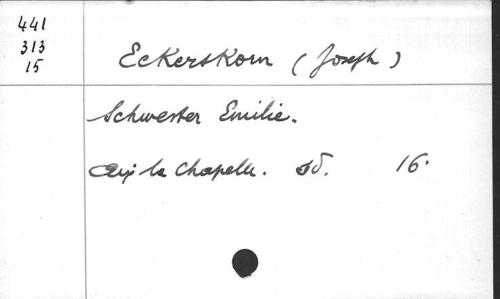 441
313
15
Eckerskorn (Joseph)
Schwester Emilie.
Aix la Chapelle. sd. 16°